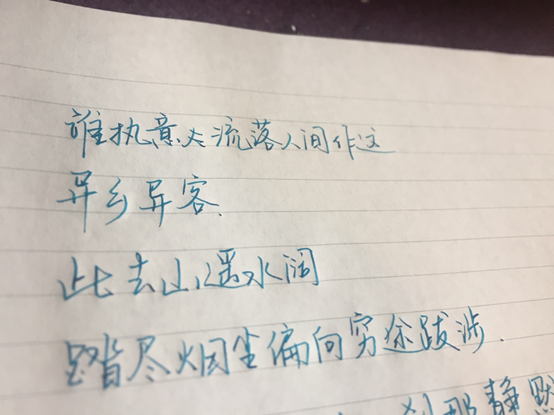 谁执意火流落人间作这
异乡异客.
此去山遥水阔
踏尽烟尘偏向穷途跋涉.
刹那静默